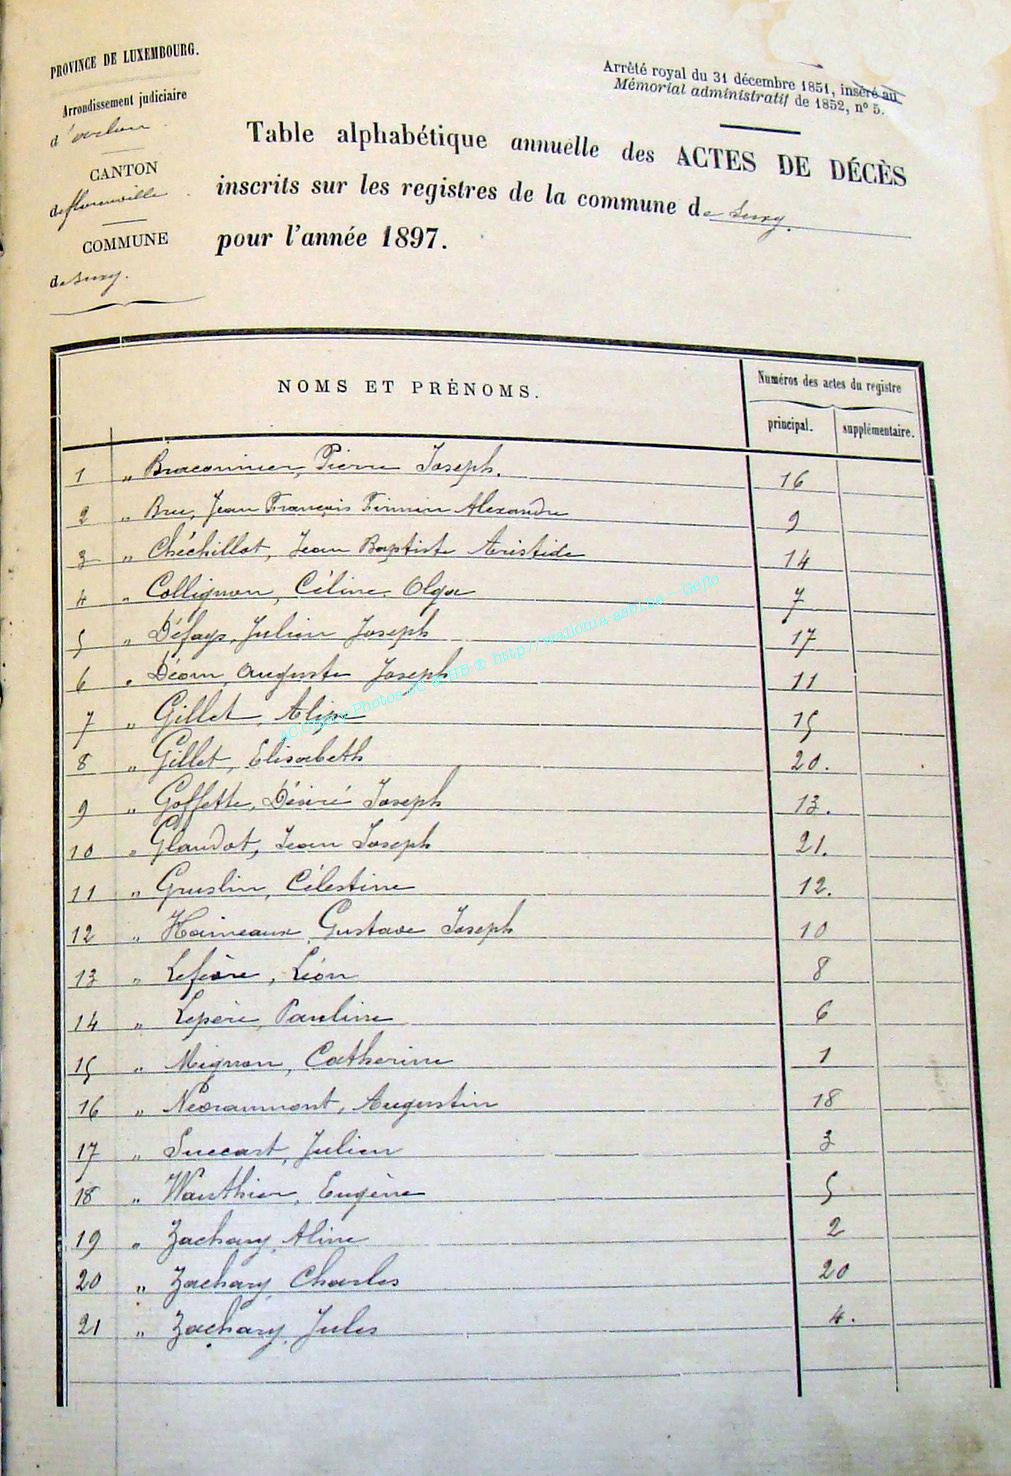 PROVINCE DE LUXEMBOURG.
Arrondissement judiciaire
d'Arlon
CANTON
de florenville
COMMUNE
de Suxy.
Arrêté royal du 31 décembre 1851, inséré au
Mémorial administratif de 1852, n° 5.
Table alphabétique annuelle des ACTES DE DÉCÈS
inscrits sur les registres de la commune de Suxy.
pour l'année 1897.
NOMS ET PRÉNOMS.
Numéros des actes du registre
principal. supplémentaire.
1 " Braconnier, Pierre Joseph. 16
2 " Bru, Jean François Firmin Alexandre 9
3 " Chéchillot, Jean Baptiste Aristide 14
4 " Collignon, Céline Olga 7
5 " Défays, Julien Joseph 17
6 " Déom, Auguste Joseph 11
7 " Gillet, Alix 15
8 " Gillet, Elisabeth 20.
9 " Goffette, Désiré Joseph 13.
10 " Glaudot, Jean Joseph 21.
11 " Gruslin, Célestine 12.
12 " Haineaux, Gustave Joseph 10
13 " Lefèvre, Léon 8
14 " Lepère, Pauline 6
15 " Mignon, Catherine 1
16 " Néoraumont, Augustin 18
17 " Suecart, Julien 3
18 " Wauthier, Eugène 5
19 " Zachary, Aline 2
20 " Zachary, Charles 20
21 " Zachary, Jules 4.